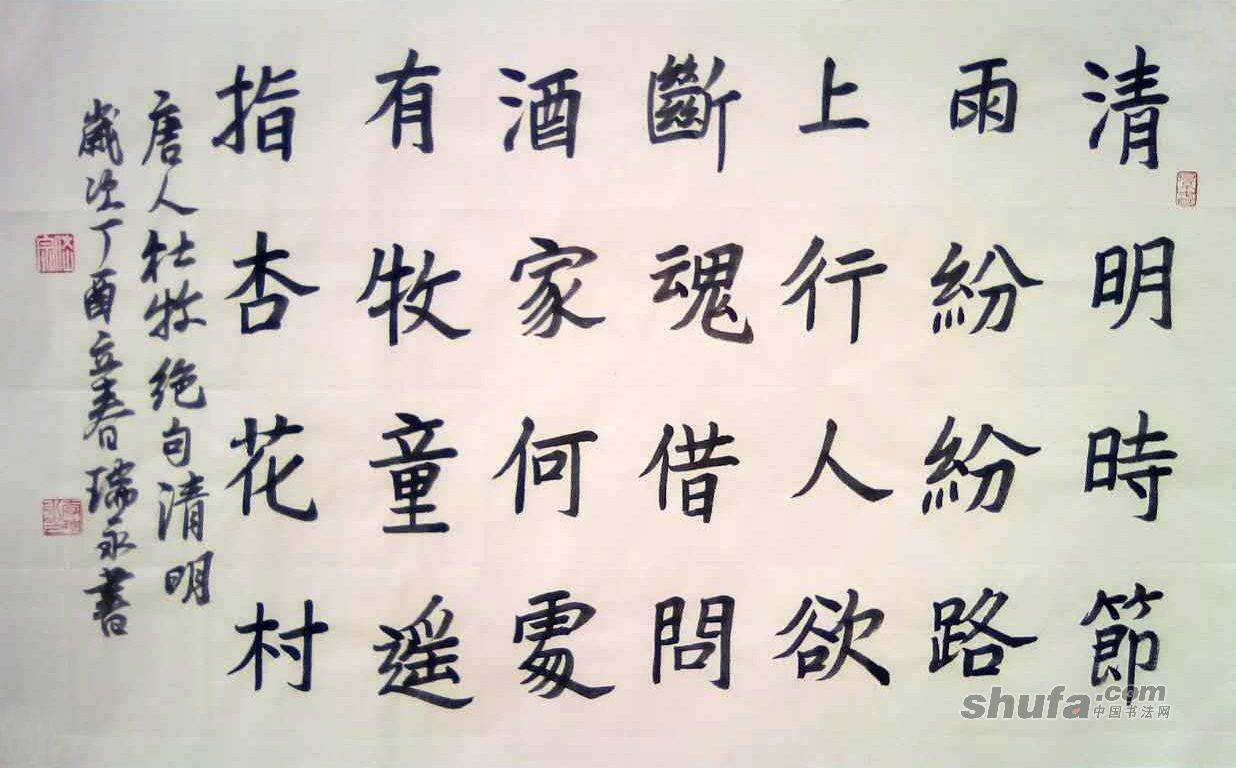 清明時節
雨紛紛路
上行人欲
斷魂借問
酒家何處
有牧童遥
指杏花村
唐人杜牧绝句清明
歲次丁酉立春瑞永書
shufa.com
中国书法网